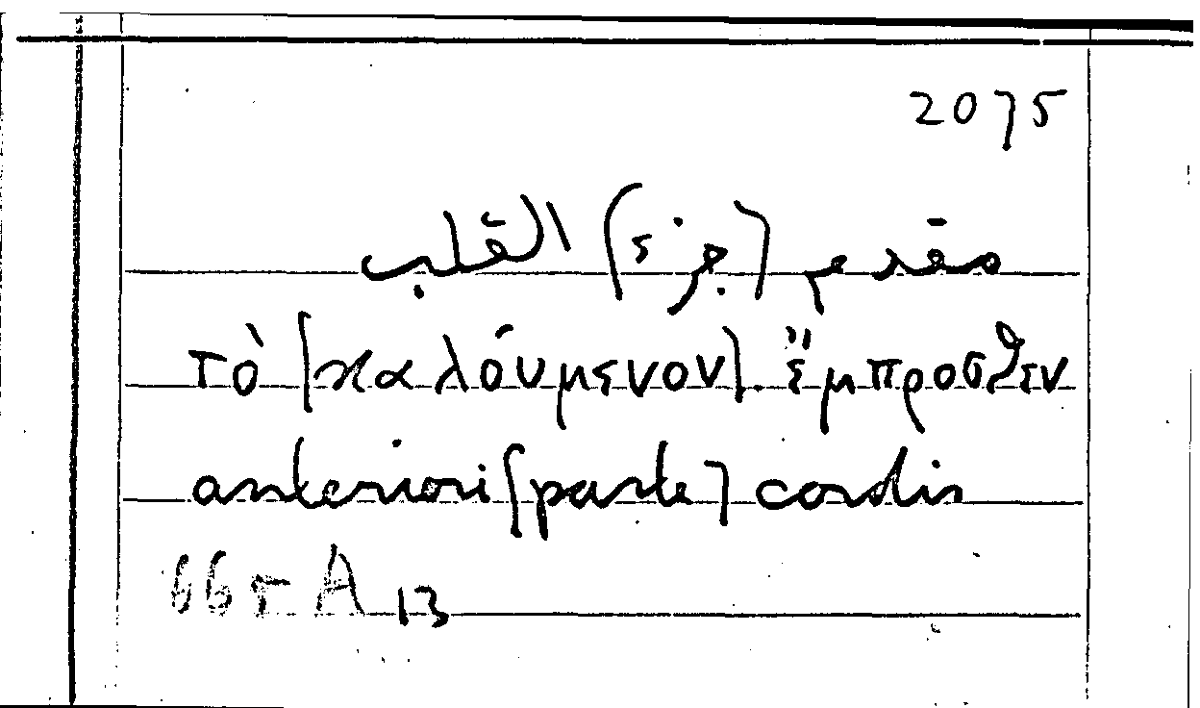 2075
مقدم (جزء) القلب
τὸ [καλόυμενον]. ἔμπροσθεν
anteriori [parte] cordis
66r A 13